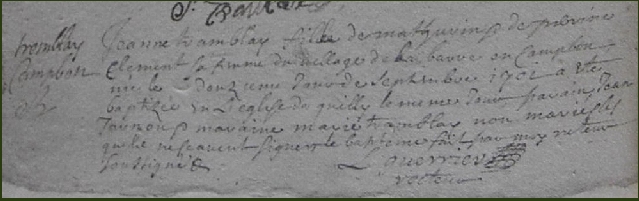 tremblay
Campbon
Jeanne tramblay fille de mathurin & de perrine
Clement sa femme du village de la barre en Campbon
née le donzieme Jour de Septembre 1701 a été
baptizée en L'eglise de quilly le meme Jour parain Jean
maraine marie tramblay non mariés
qui ne scavent signer le bapteme fait par moy recteur
soussigné
guerrier
recteur